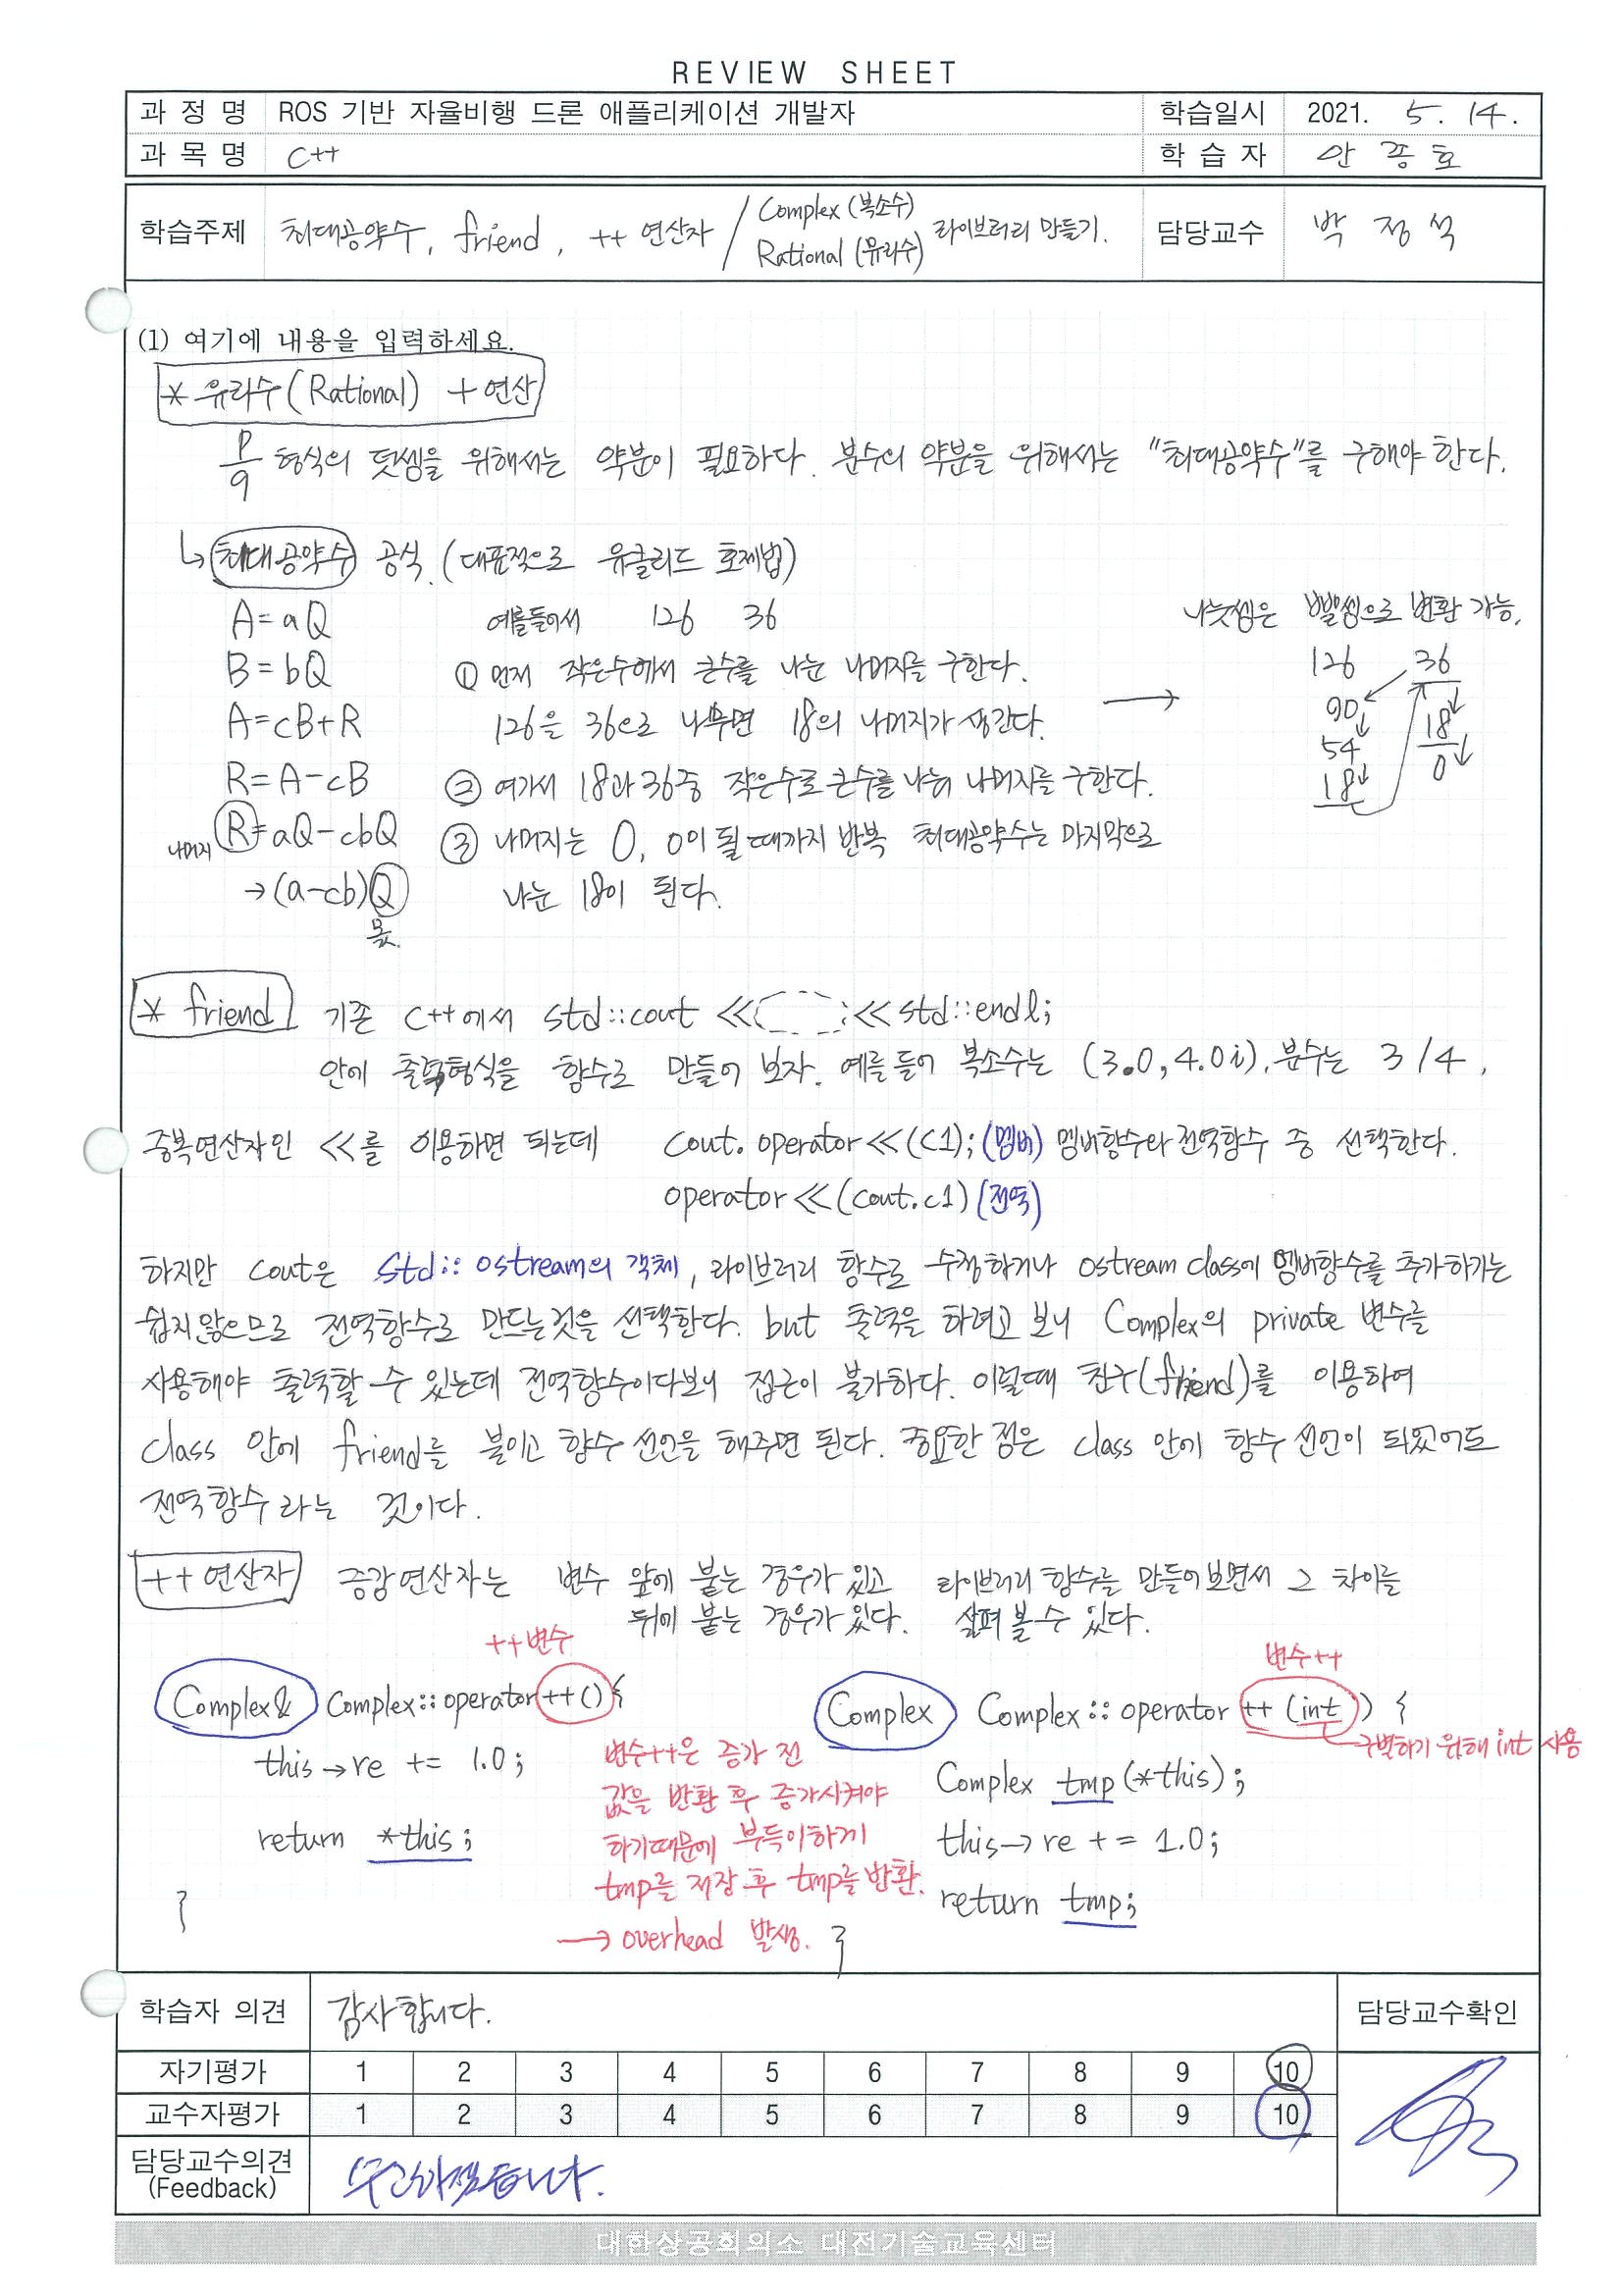 REVIEW SHEET
과 정 명 ROS 기반 자율비행 드론 애플리케이션 개발자 학습일시 2021. 5. 14.
과 목 명 C++ 학 습 자 안 종 호
학습주제 최대공약수, friend, ++ 연산자 / Complex (복소수) Rational (유리수) 라이브러리 만들기. 담당교수 박 정 석
(1) 여기에 내용을 입력하세요.
* 유리수(Rational) + 연산
p/q 형식의 덧셈을 위해서는 약분이 필요하다. 분수의 약분을 위해서는 "최대공약수"를 구해야 한다.
↳ 최대공약수 공식. (대표적으로 유클리드 호제법)
A=aQ
B=bQ
A=cB+R
R=A-cB
나머지 R=aQ-cbQ
→(a-cb)Q
몫.
예를들어서 126 36
① 먼저 작은수에서 큰수를 나눈 나머지를 구한다.
126을 36으로 나누면 18의 나머지가 생긴다.
② 여기서 18과 36중 작은수로 큰수를 나눠 나머지를 구한다.
③ 나머지는 0, 0이 될때까지 반복 최대공약수는 마지막으로
나눈 18이 된다.
→
나눗셈은 뺄셈으로 변환 가능.
126 36
90
54 18
18 0
* friend 기존 C++에서 std::cout << << std::endl;
안에 출력형식을 함수로 만들어 보자. 예를 들어 복소수는 (3.0, 4.0i), 분수는 3/4,
중복연산자인 <<를 이용하면 되는데 cout. operator<<(c1); (멤버) 멤버함수와 전역함수 중 선택한다.
operator<<(cout.c1) (전역)
하지만 cout은 std::ostream의 객체, 라이브러리 함수로 수정하거나 ostream class에 멤버함수를 추가하기는
쉽지않으므로 전역함수로 만드는것을 선택한다. but 출력을 하려고 보니 Complex의 private 변수를
사용해야 출력할 수 있는데 전역함수이다보니 접근이 불가하다. 이럴때 친구(friend)를 이용하여
class 안에 friend를 붙이고 함수 선언을 해주면 된다. 중요한 점은 class 안에 함수 선언이 되있어도
전역함수 라는 것이다.
++ 연산자 증감연산자는 변수 앞에 붙는 경우가 있고 라이브러리 함수를 만들어보면서 그 차이를
뒤에 붙는 경우가 있다. 살펴 볼 수 있다.
++변수
Complex& Complex::operator++() {
this→re += 1.0;
return *this;
}
변수++은 증가 전
값을 반환 후 증가시켜야
하기때문에 부득이하게
tmp를 저장 후 tmp를 반환.
→ overhead 발생.
변수++
Complex Complex::operator ++ (int) {
구별하기 위해 int 사용
Complex tmp(*this);
this→re += 1.0;
return tmp;
}
학습자 의견 감사합니다. 담당교수확인
자기평가 1 2 3 4 5 6 7 8 9 10
교수자평가 1 2 3 4 5 6 7 8 9 10
담당교수의견
(Feedback) 수고하셨습니다.
대한상공회의소 대전기술교육센터